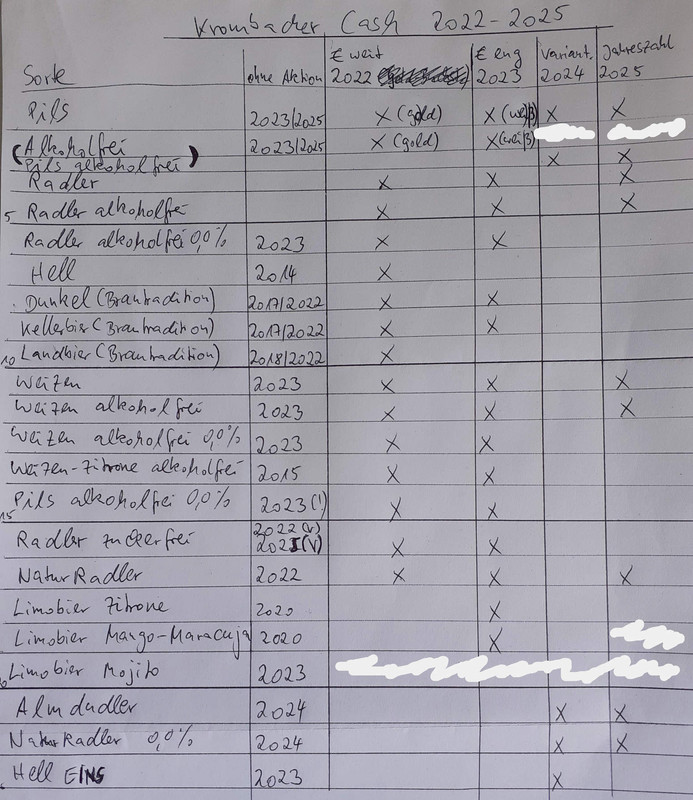 Krombacher Cash 2022-2025
Sorte ohne Aktion € weit 2022 € eng 2023 Variant. 2024 Jahreszahl 2025
Pils 2023/2025 X (gold) X (weiß) X X
(Alkoholfrei 2023/2025 X (gold) X (weiß)
Pils alkoholfrei) X X
Radler X X X
5 Radler alkoholfrei X X X
Radler alkoholfrei 0,0% 2023 X X
Hell 2014 X
Dunkel (Brautradition) 2017/2022 X X
Kellerbier (Brautradition) 2017/2022 X X
10 Landbier (Brautradition) 2018/2022 X
Weizen 2023 X X X
Weizen alkoholfrei 2023 X X X
Weizen alkoholfrei 0,0% 2023 X X
Weizen-Zitrone alkoholfrei 2015 X X
15 Pils alkoholfrei 0,0% 2023 (!) X X
Radler zuckerfrei 2022 (V) (V) X X
NaturRadler 2022 X X X
Limobier Zitrone 2020 X
Limobier Mango-Maracuja 2020 X
Limobier Mojito 2023
Almdudler 2024 X X
NaturRadler 0,0% 2024 X X
Hell EINS 2023 X